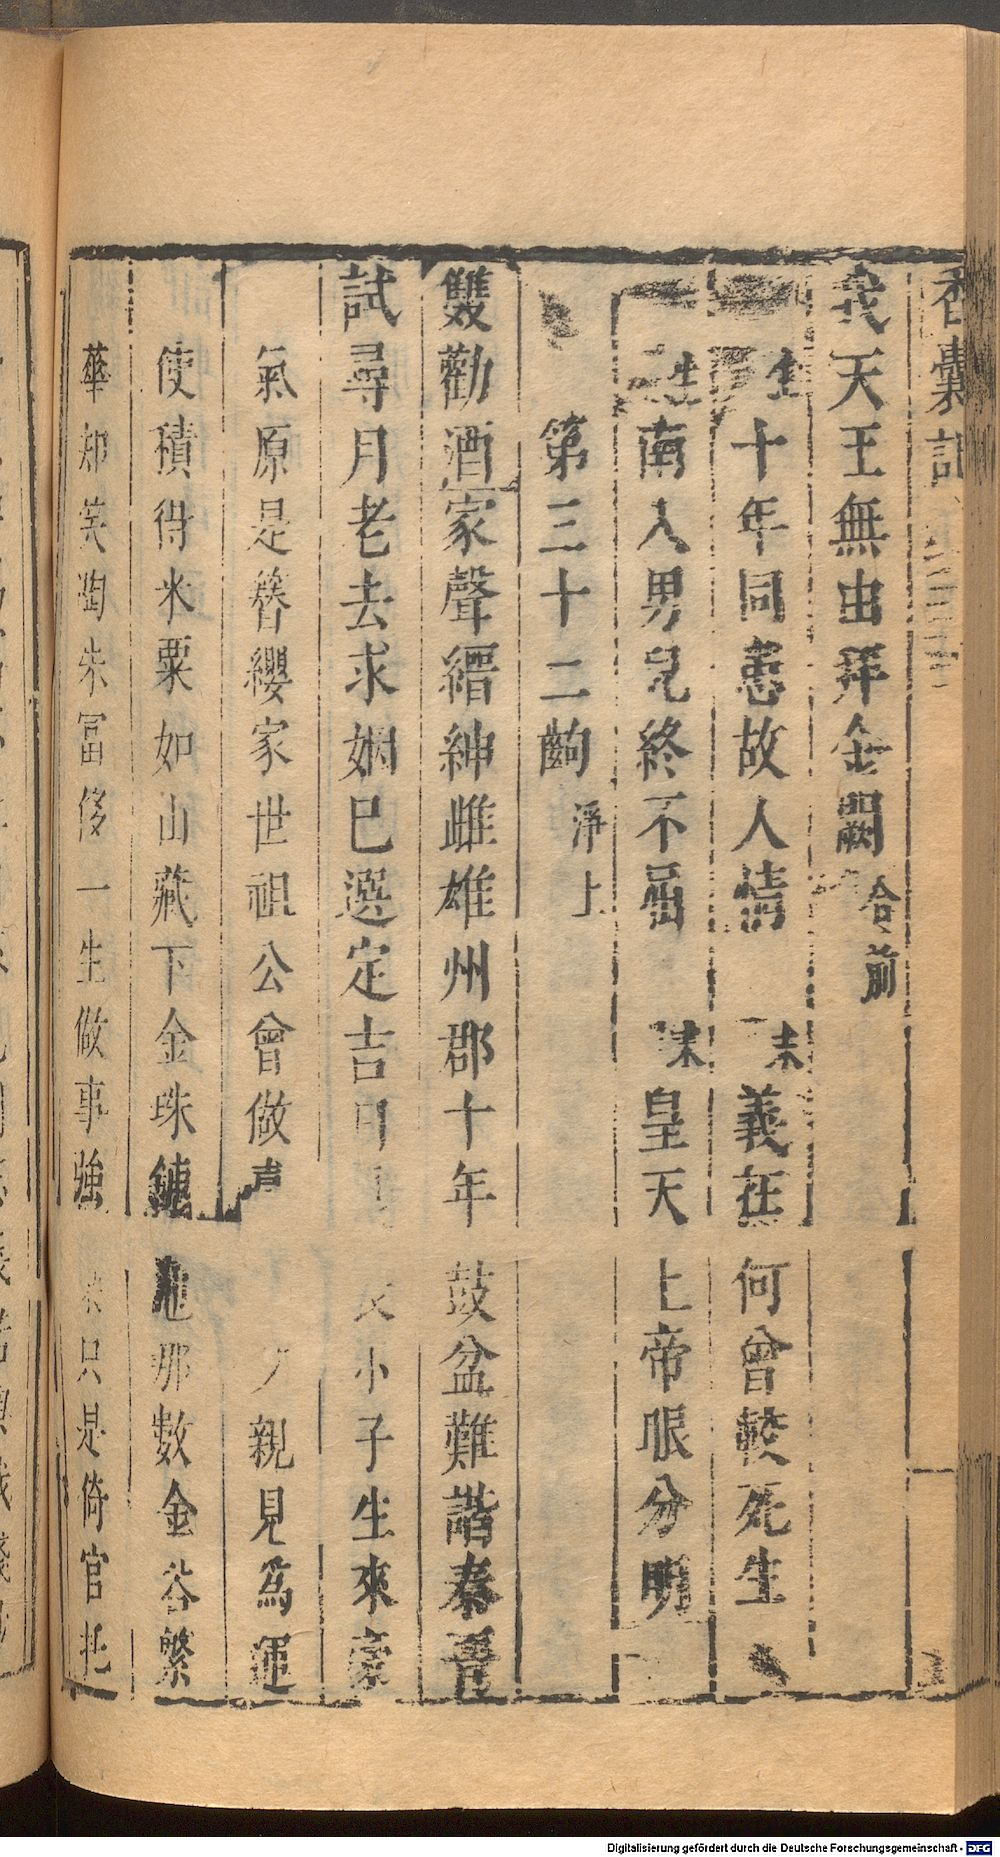 香囊記
我天王無由拜金闕 合前
生 十年同患故人情 末 義在何曾較死生
生 南人男兒終不屈 末 皇天上帝眼分明
第三十二齣 淨上
雙勸酒 家聲縉紳雌雄州郡十年鼓盆難諧秦晉
試尋月老去求姻巳選定吉日 小子生來豪
氣原是簪纓家世祖公曾做 親見爲運
使積得米粟如山藏下金珠 地那數金谷繁
華却笑陶朱冨侈一生做事強 只是倚官托
Digitalisierung gefördert durch die Deutsche Forschungsgemeinschaft - DFG